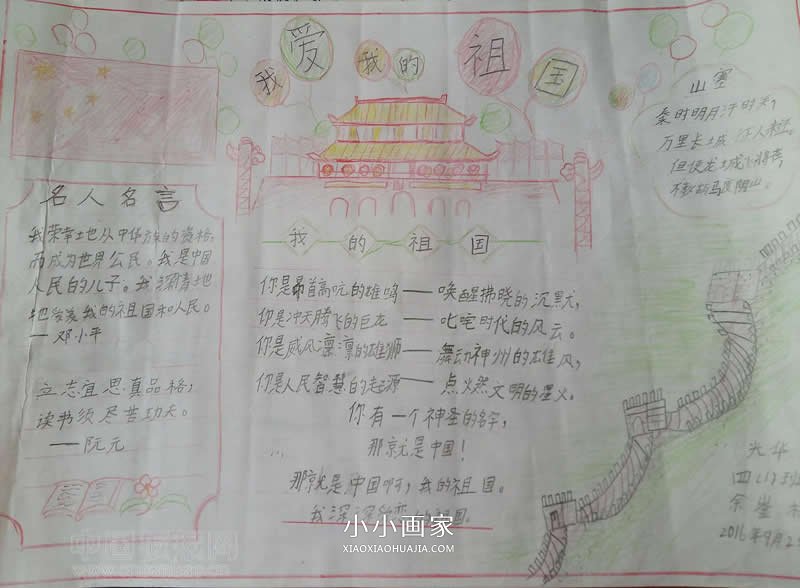 我爱我的祖国
名人名言
我荣幸地以中华民族的资格,
而成为世界公民。我是中国
人民的儿子。我深情地
地爱着我的祖国和人民。
—邓小平
立志宜思真品格,
读书须尽苦功夫。
——阮元
我的祖国
你是昂首高吭的雄鸡——唤醒拂晓的沉默,
你是冲天腾飞的巨龙——叱咤时代的风云。
你是威风凛凛的雄狮——舞动神州的雄风,
你是人民智慧的起源——点燃文明的星火。
你有一个神圣的名字,
那就是中国!
那就是中国啊,我的祖国。
我深深
祖国。
山塞
秦时明月汗时关,
万里长城
人未
但使龙城飞将在,
不教胡马度阴山。
光华
四(1)班
余
2016年9月2
小小画家
XIAOXIAOHUAJIA.COM